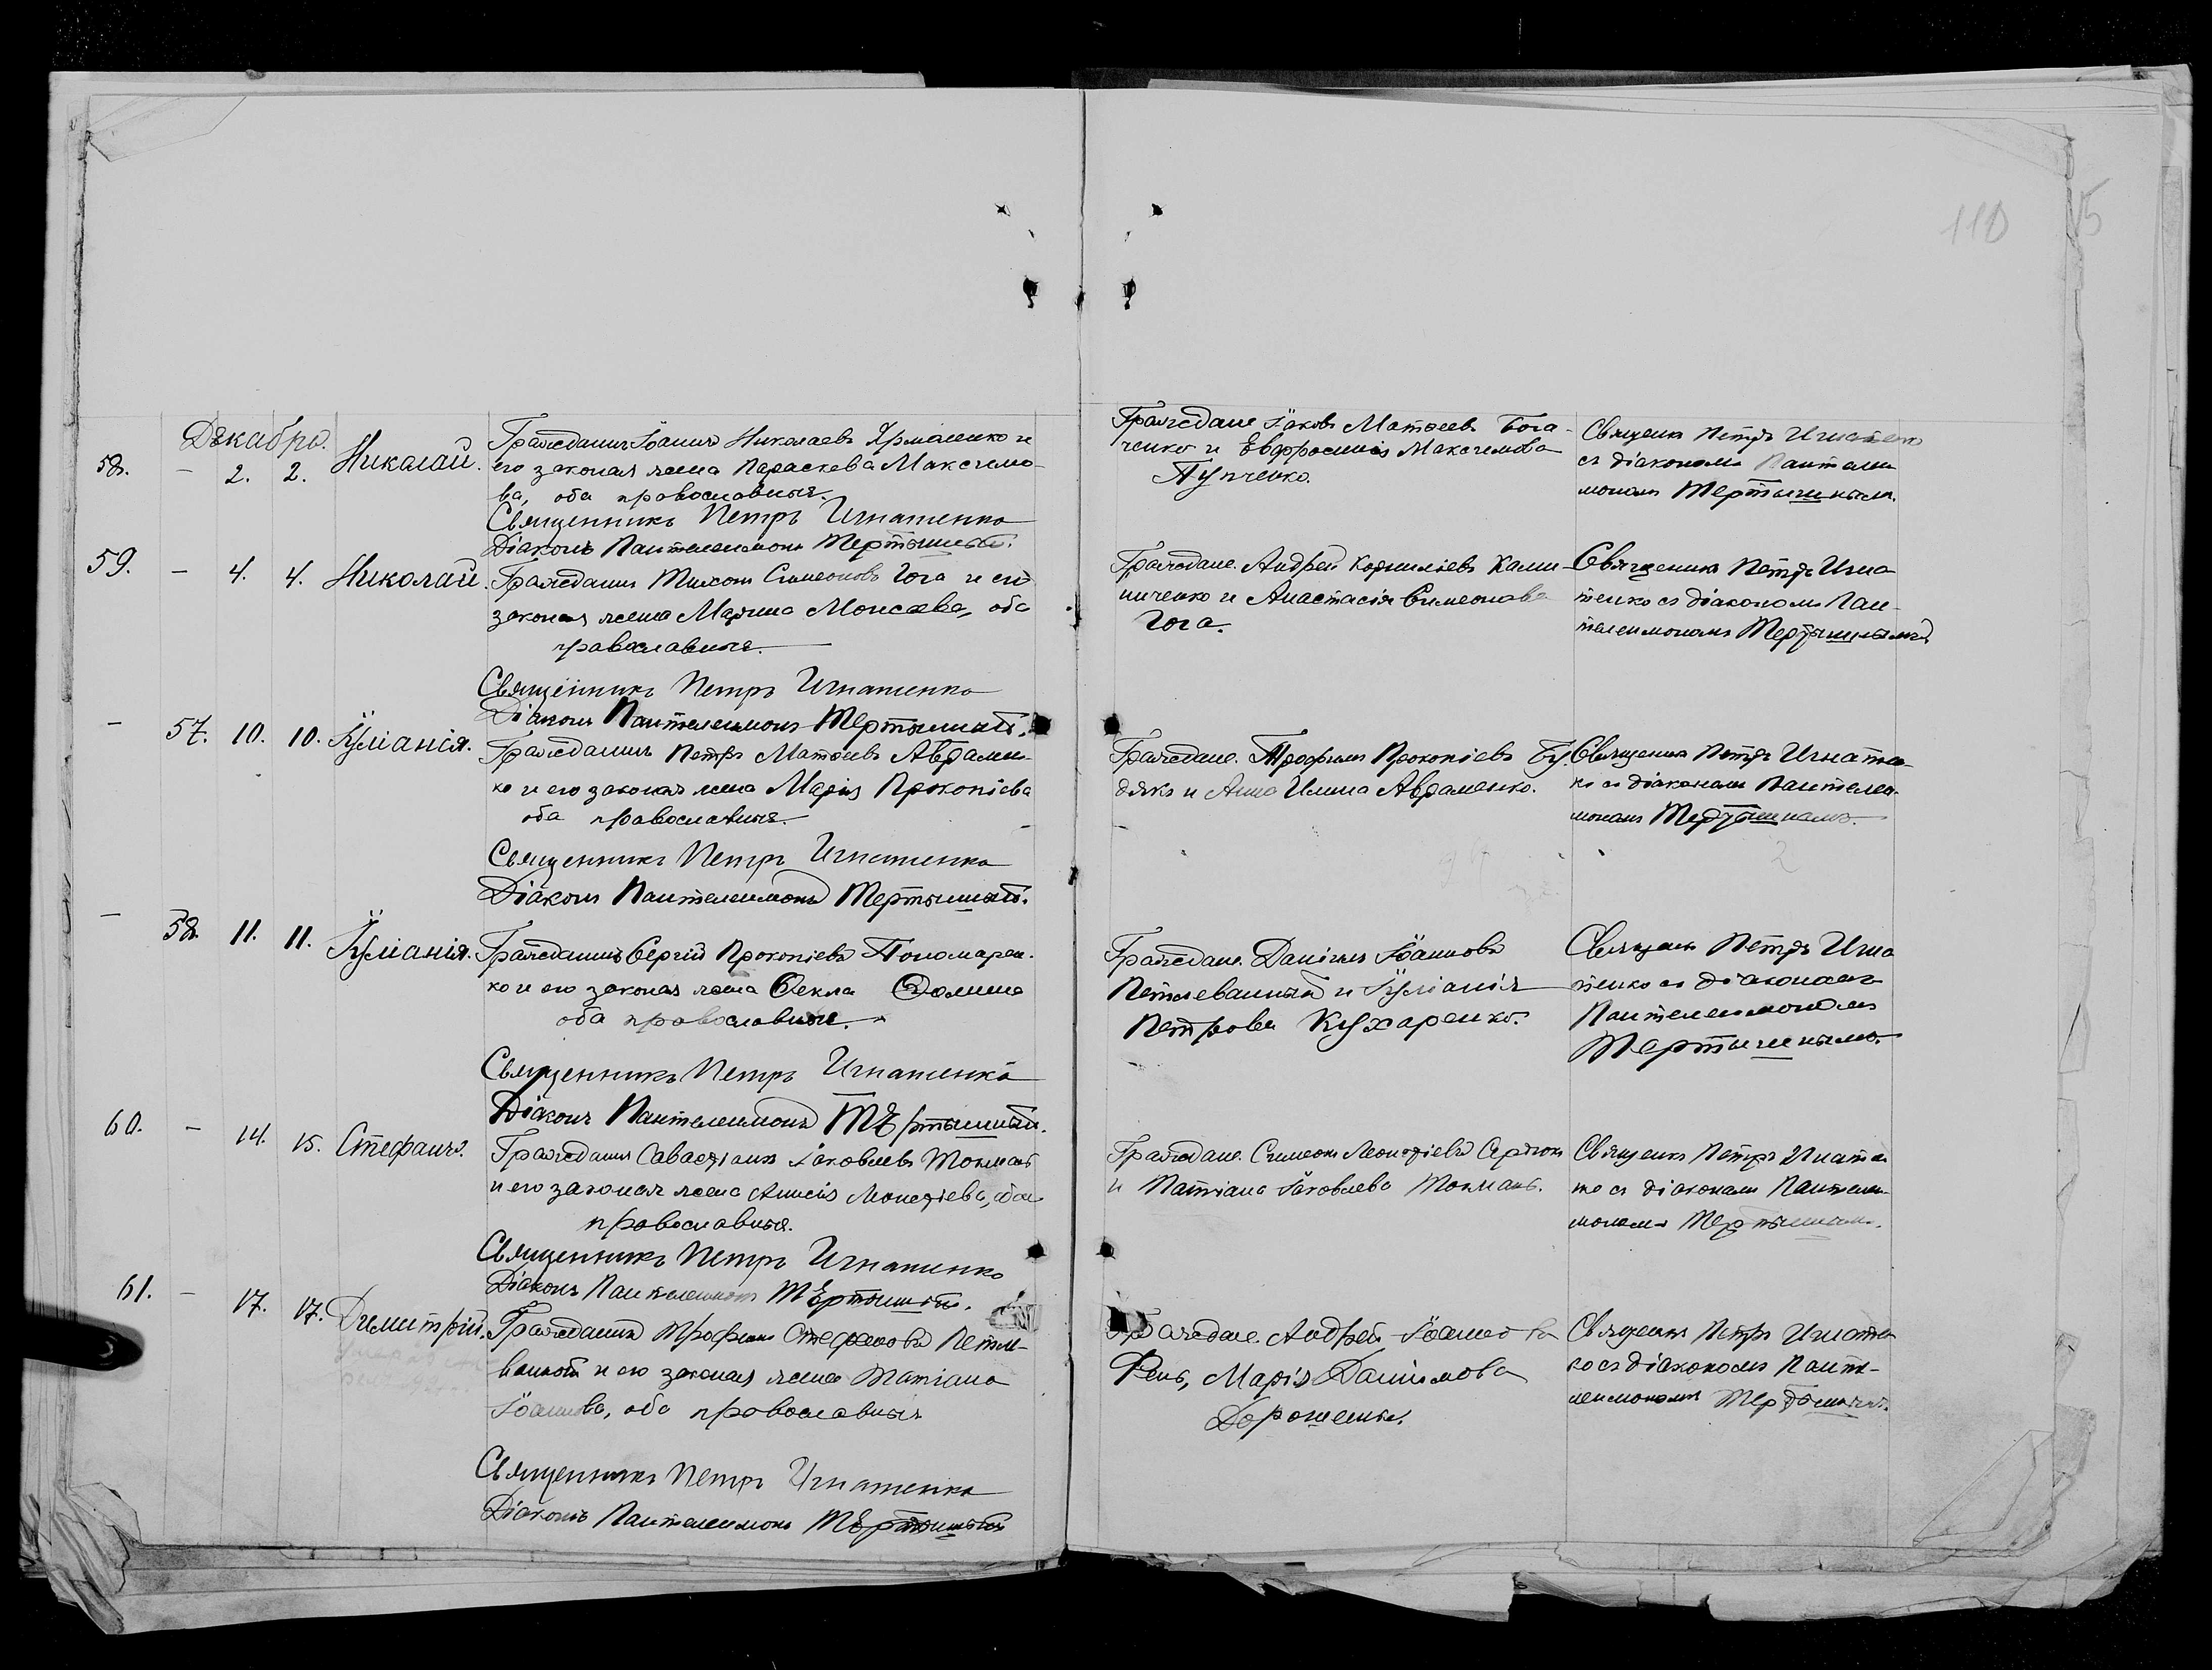 110
15
Декабрь.
58. — 2. 2. Николай.
Гражданинъ Іоаннъ Николаевъ и
его законая жена Параскева Максимо-
ва, оба православныя.
Священникъ Петръ Игнатенко
Діаконъ Пантелеимонъ Мертышный.
Граждане Іаковъ Матѳеевъ Бога-
ченко и Евфросинія Максимова
Пупченко.
Священ. Петръ Игнатенко
съ діакономъ Пантелеи
мономъ Мертышнымъ.
59. — 4. 4. Николай.
Гражданинъ Тихонъ Симеоновъ Гога и его
законая жена Марина Моисеева, оба
православныя.
Священникъ Петръ Игнатенко
Діаконъ Пантелеимонъ Мертышный.
Граждане Андрей Корниліевъ Кали-
ниченко и Анастасія Симеонова
Гога.
Священникъ Петръ Игна
тенко съ діакономъ Пан-
телеимономъ Мертышнымъ.
— 57. 10. 10. Іуліанія.
Гражданинъ Петръ Матѳеевъ Аврамен-
ко и его законая жена Марія Прокопіева
оба православныя.
Священникъ Петръ Игнатенко
Діаконъ Пантелеимонъ Мертышный.
Граждане Трофимъ Прокопіевъ Бу
дякъ и Анна Ильина Авраменко.
Священникъ Петръ Игнатен
ко съ діакономъ Пантелеи
мономъ Мертышнымъ.
— 58. 11. 11. Іуліанія.
Гражданинъ Сергій Прокопіевъ Пономарен-
ко и его законая жена Ѳекла Ѳомина
оба православныя.
Священникъ Петръ Игнатенко
Діаконъ Пантелеимонъ Мертышный.
Граждане Даніилъ Іоанновъ
Петлеванный и Іуліанія
Петрова Кухаренко.
Священ. Петръ Игна
тенко съ діакономъ
Пантелеимономъ
Мертышнымъ.
60. — 14. 15. Стефанъ.
Гражданинъ Савастіанъ Іаковлевъ Токмань
и его законая жена Анисія Леонтіева, оба
православныя.
Священникъ Петръ Игнатенко
Діаконъ Пантелеимонъ Мертышный.
Граждане Симеонъ Леонтіевъ Сердюкъ
и Татіана Іаковлева Токмань.
Священ. Петръ Игнатен
ко съ діакономъ Пантелеи
мономъ Мертышнымъ.
61. — 17. 17. Димитрій.
Гражданинъ Трофимъ Стефановъ Петле-
ванный и его законая жена Татіана
Іоаннова, оба православныя
Священникъ Петръ Игнатенко
Діаконъ Пантелеимонъ Мертышный
Граждане Андрей Іоанновъ
Рень, Марія Даніилова
Дорошенко.
Священникъ Петръ Игнатен
ко съ діакономъ Панте-
леимономъ Мертышнымъ.